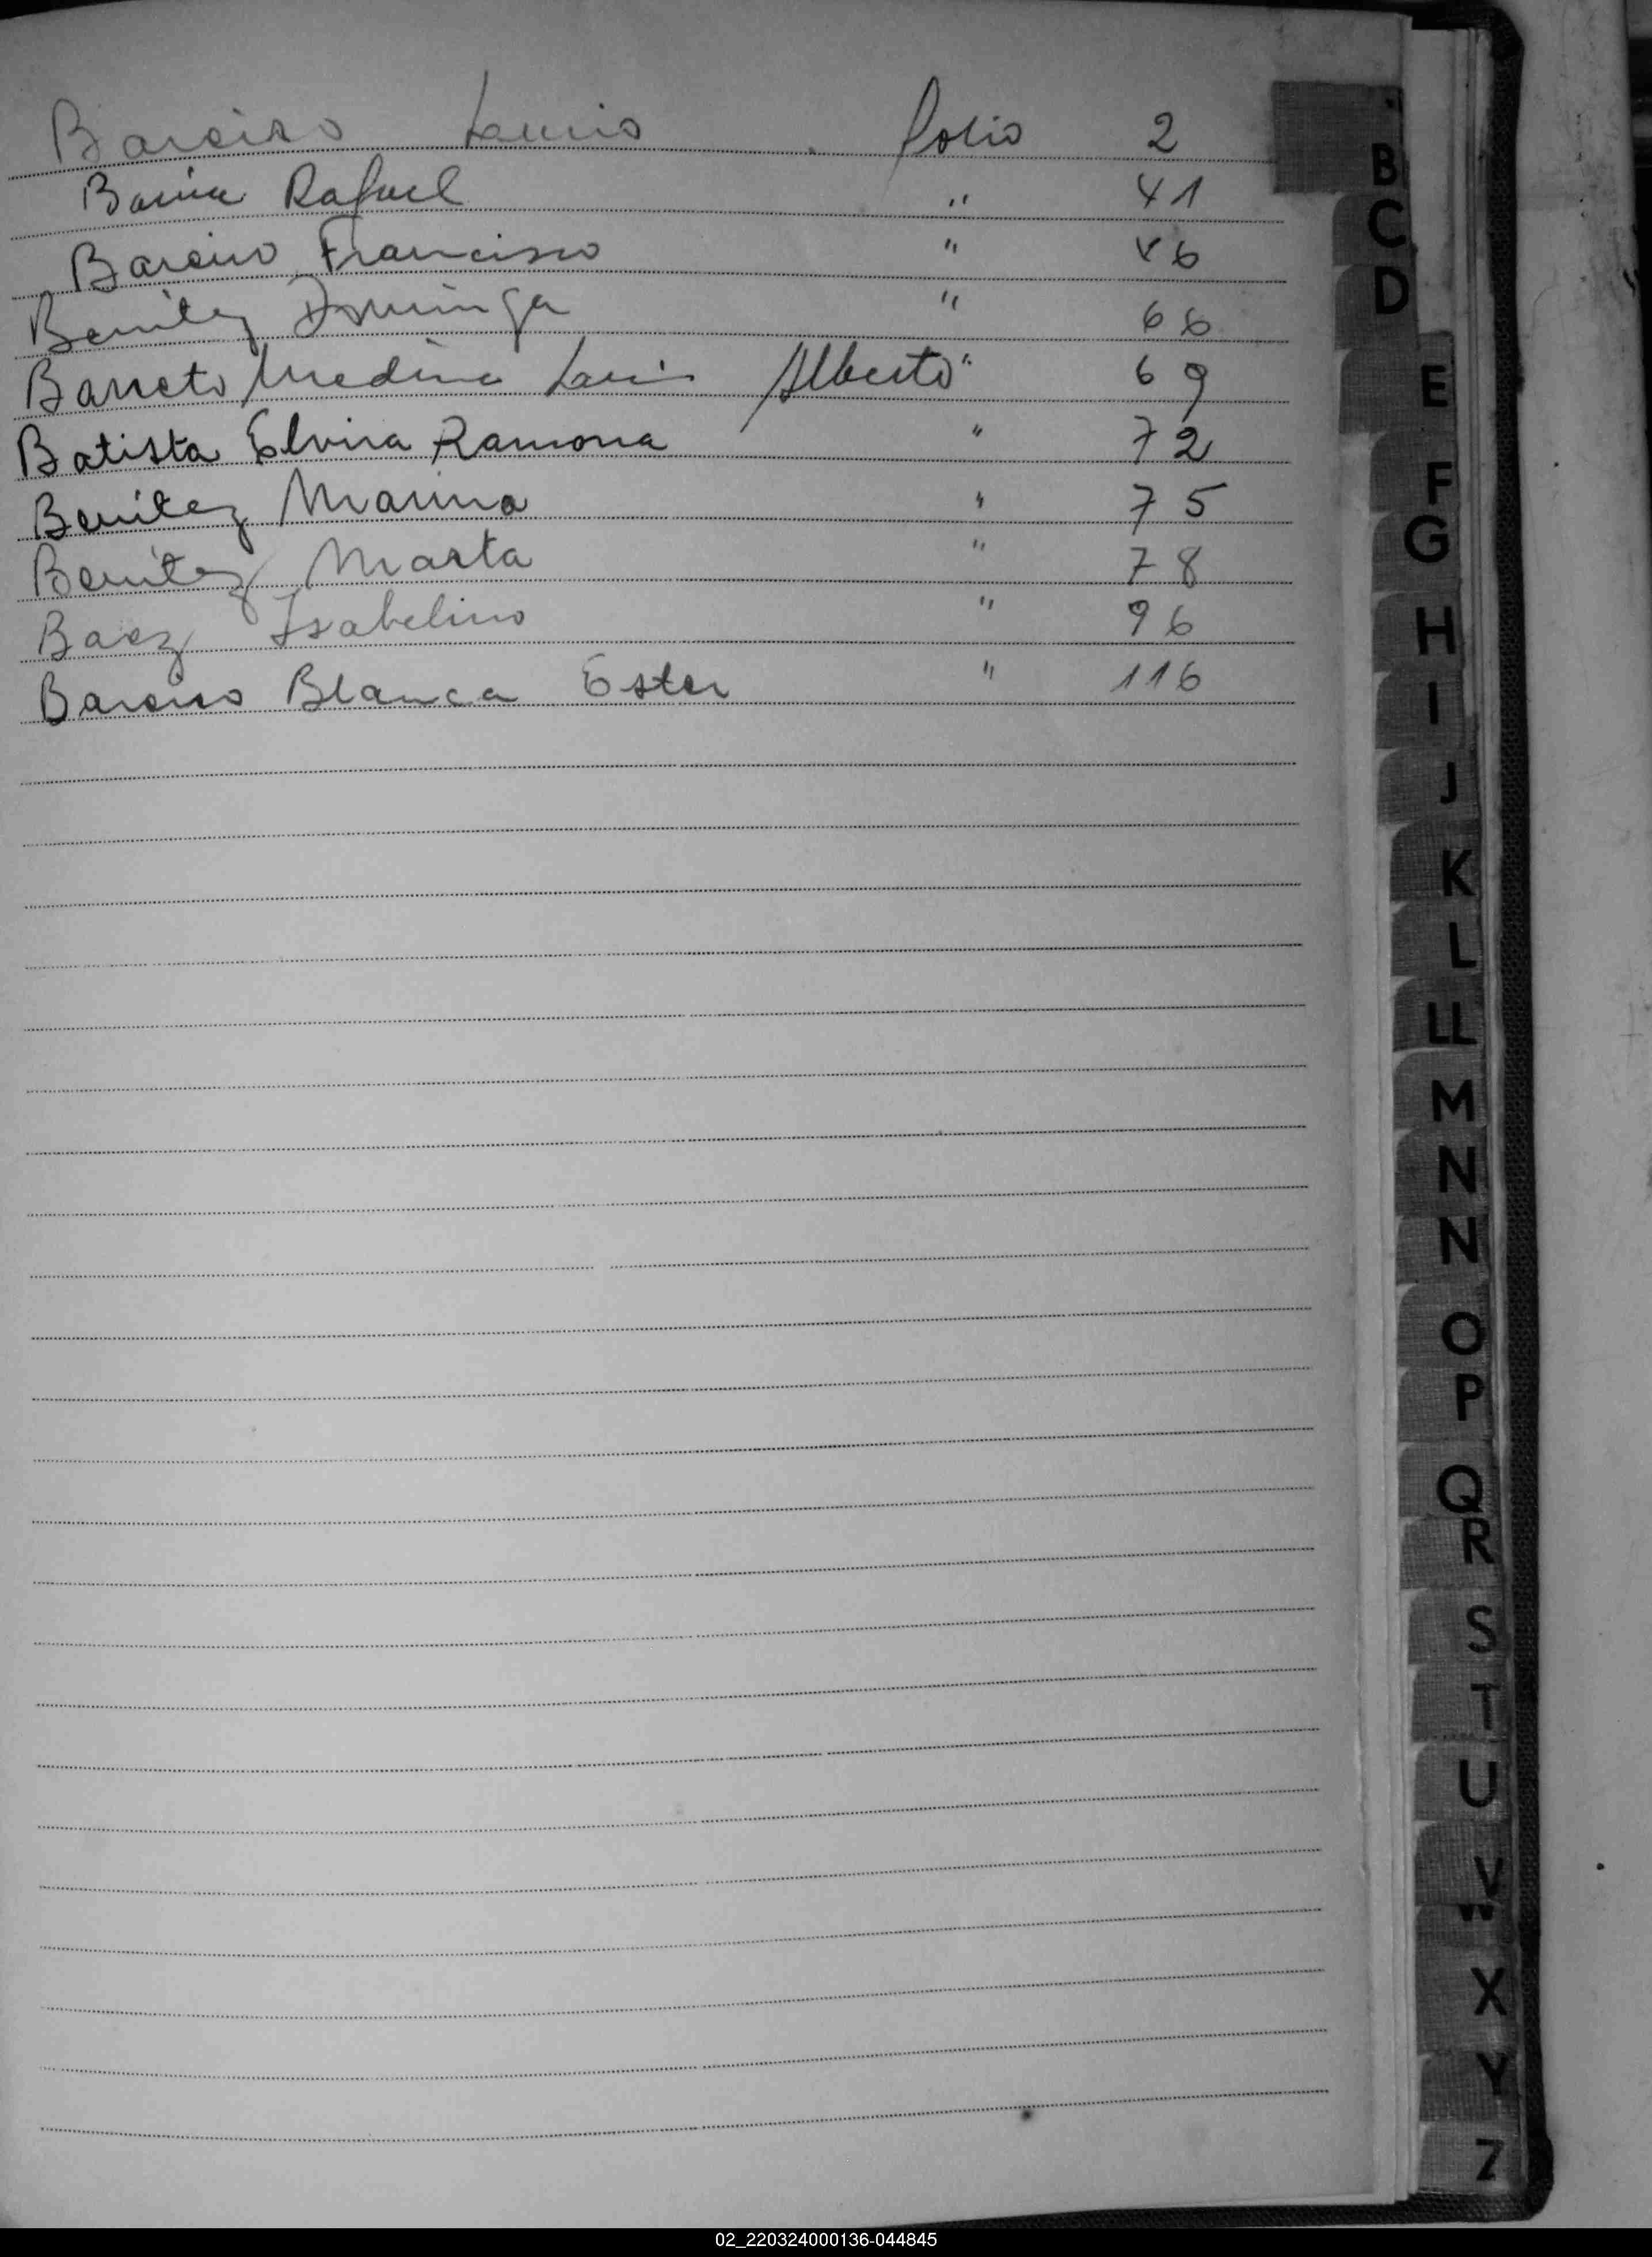 Bareiro folio 2
Rafael " 41
Bareiro Francisco " 46
Benitez Dominga " 66
Barreto Medina Luis Alberto " 69
Batista Elvira Ramona " 72
Benitez Marina " 75
Benitez Marta " 78
Baez Isabelino " 96
Bareiro Blanca Ester " 116
B
C
D
E
F
G
H
I
J
K
L
LL
M
N
N
O
P
Q
R
S
T
U
V
W
X
Y
Z
02_220324000136-044845